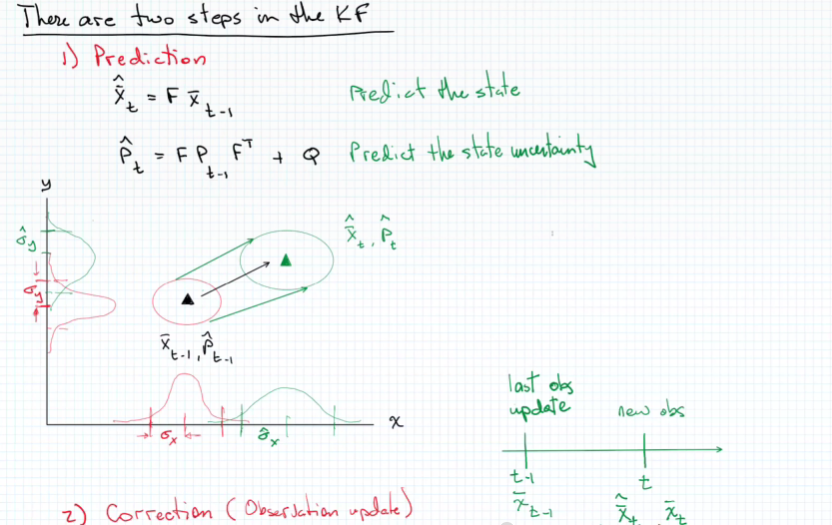 There are two steps in the KF
1) Prediction
x̂̄_t = F x̄_{t-1} Predict the state
P̂_t = F P_{t-1} F^T + Q Predict the state uncertainty
y
σ̂_y
σ_y
x̂̄_t, P̂_t
x̄_{t-1}, P̂_{t-1}
σ_x σ̂_x x
last obs
update new obs
t-1 t
x̄_{t-1} x̂̄_t x̄_t
2) Correction (Observation update)